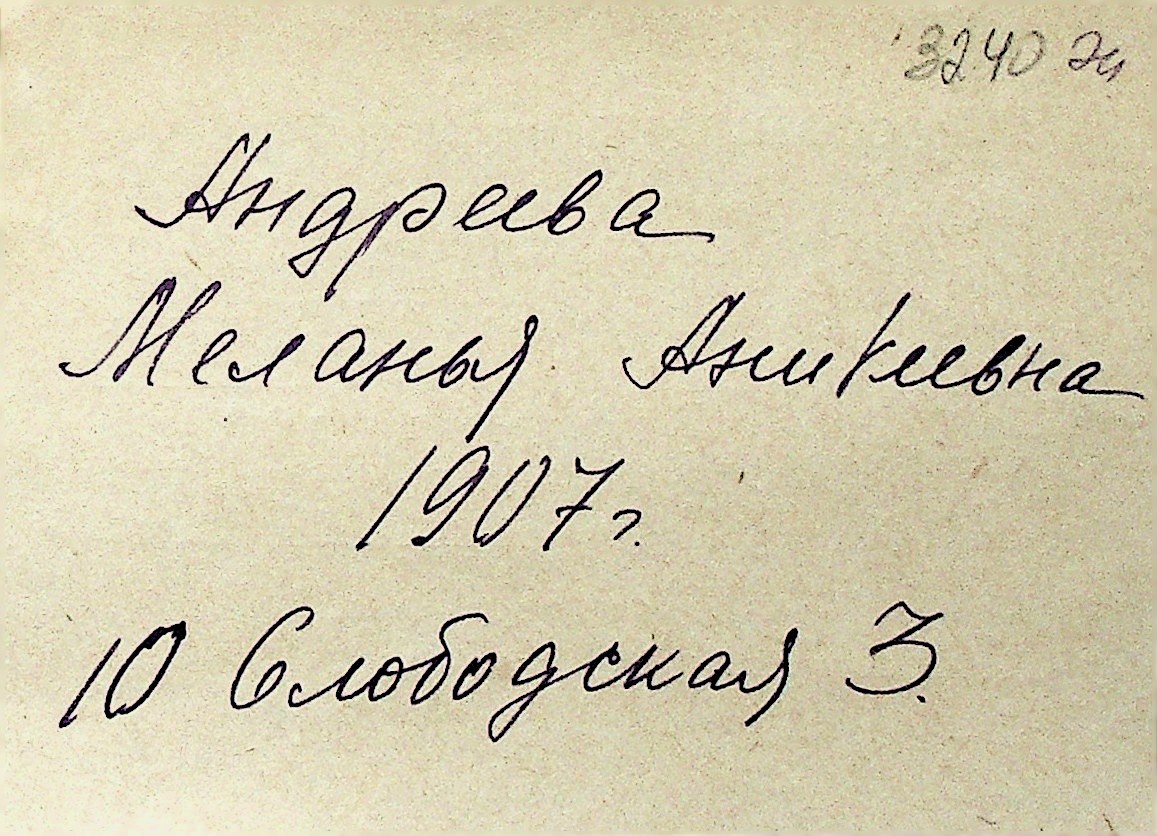 3240
Андреева
Меланья Аникиевна
1907 г.
10 Слободская 3.